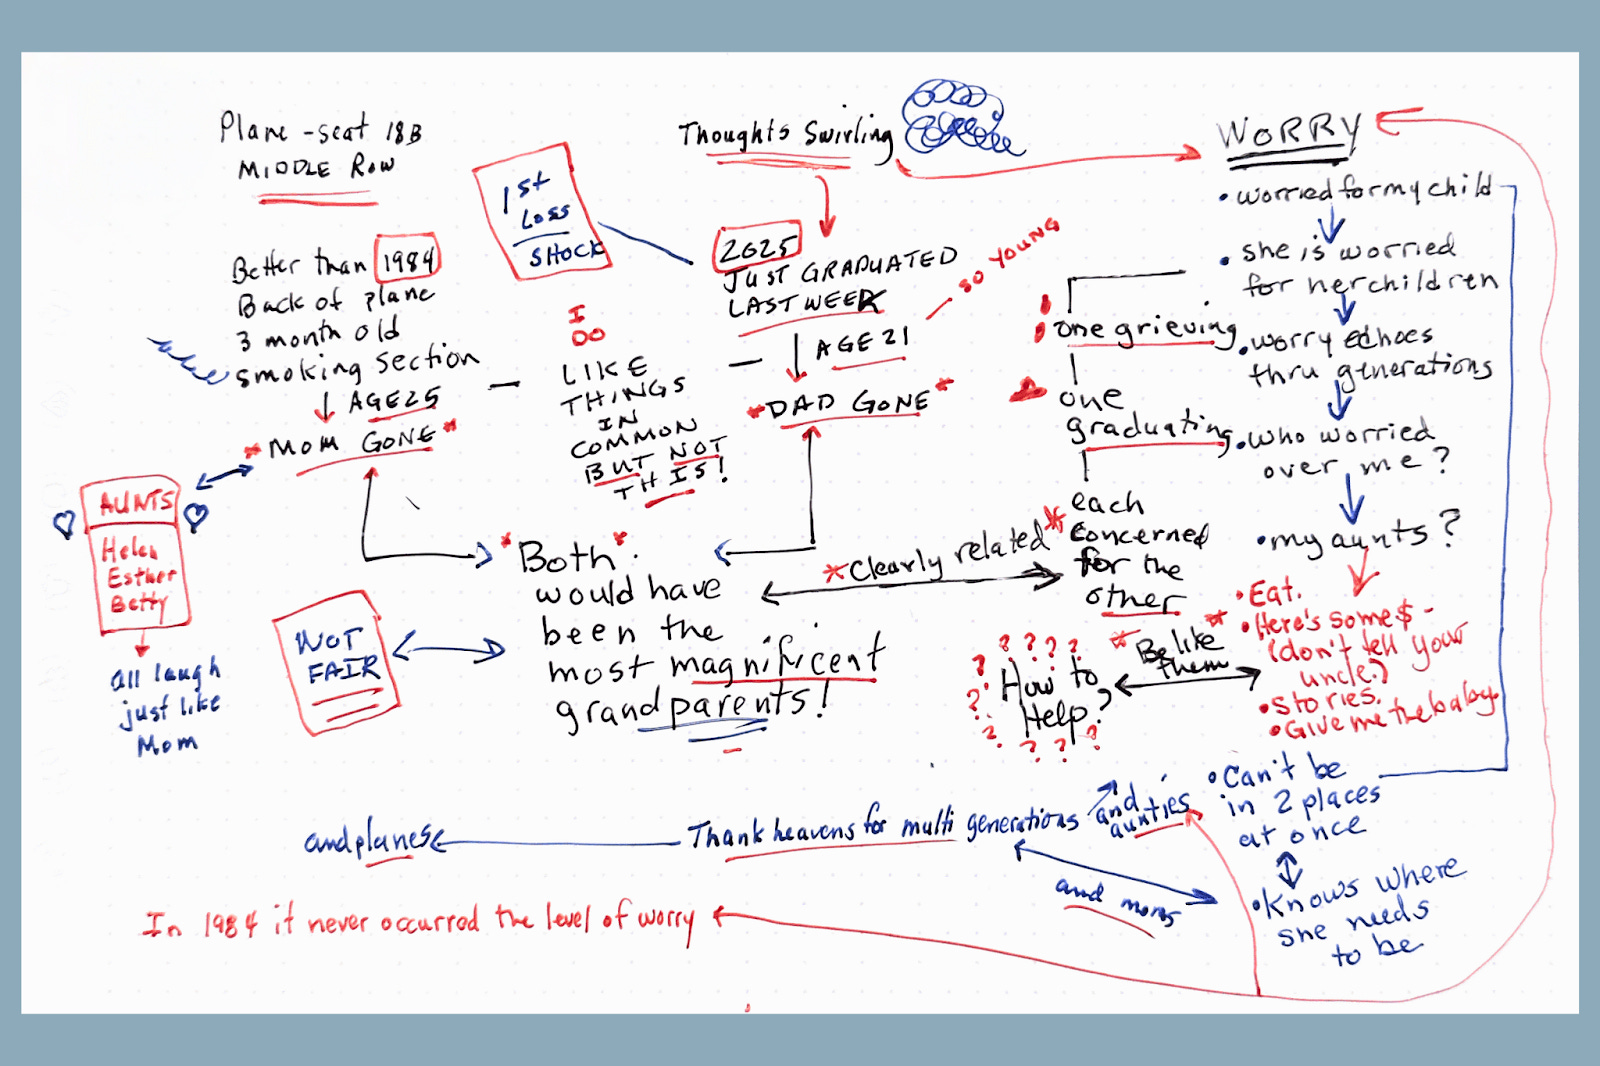 Plane - seat 18B
MIDDLE ROW
Better than 1984
Back of plane
3 month old
smoking section
AGE 25
* MOM GONE *
AUNTS
Helen
Esther
Betty
all laugh
just like
Mom
1st
LOSS
SHOCK
I
DO
LIKE
THINGS
IN
COMMON
BUT NOT
THIS!
Thoughts Swirling
2025
JUST GRADUATED
LAST WEEK
SO YOUNG
AGE 21
* DAD GONE *
NOT
FAIR
* Both *
would have
been the
most magnificent
grandparents!
* Clearly related *
one grieving
one
graduating
each
concerned
for the
other
WORRY
• worried for my child
• she is worried
for her children
• worry echoes
thru generations
• who worried
over me?
• my aunts?
• Eat.
• Here's some $ -
(don't tell your
uncle.)
• Stories.
• Give me the baby.
* Be like *
them
? ? ? ?
? How to
? Help?
? ? ? ?
• Can't be
in 2 places
at once
• Knows where
she needs
to be
Thank heavens for multi generations
and
aunties
and moms
and planes
In 1984 it never occurred the level of worry